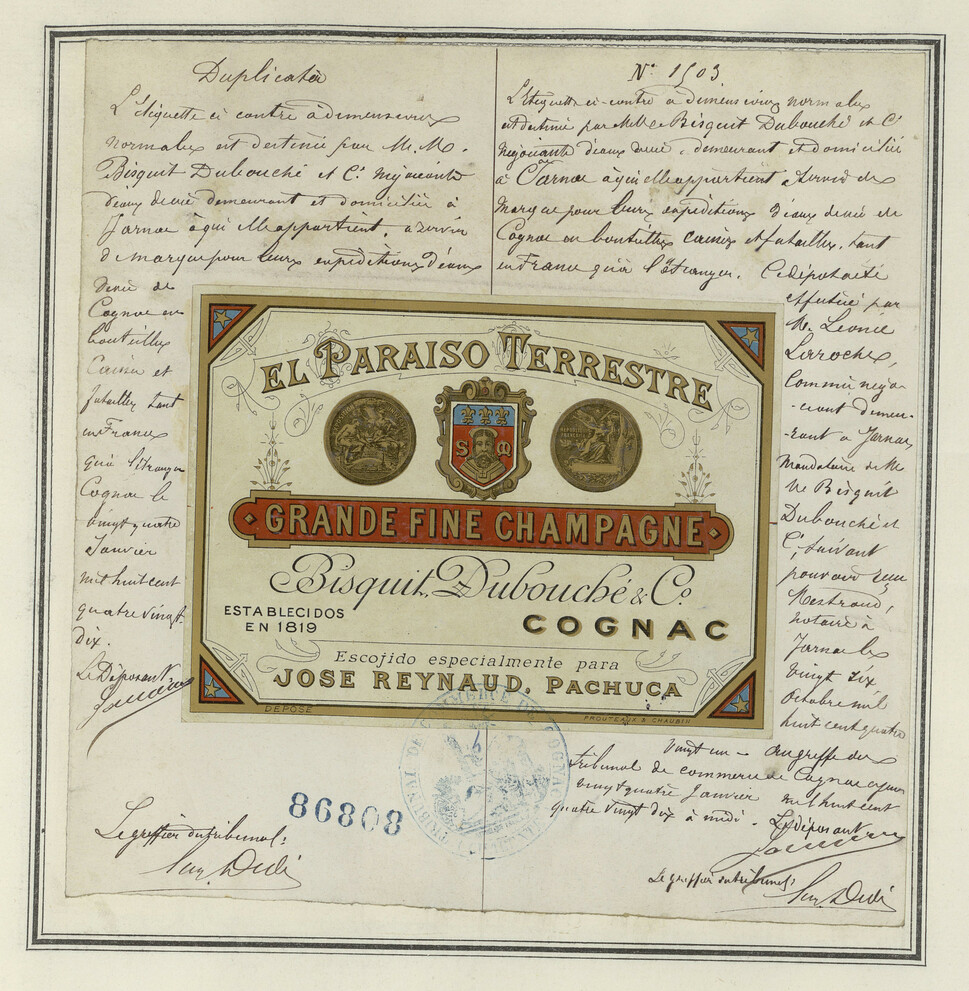 Duplicata
L'étiquette ci contre à dimensions
normales est destinée par M.M.
Bisquit Dubouché et Cⁱᵉ négociants
d'eaux de vie demeurant et domiciliés à
Jarnac à qui elle appartient, à servir
de marque pour leurs expéditions d'eaux
de vie de
Cognac en
bouteilles
Caisses et
futailles tant
en France
qu'à l'étranger
Cognac le
vingt quatre
Janvier
mil huit cent
quatre vingt
dix.
Le Déposant
Le greffier du tribunal:
N° 1503
L'Etiquette ci-contre à dimensions normales
est destinée par MM Bisquit Dubouché et Cⁱᵉ
négociants d'eaux de vie, demeurant et domiciliés
à Jarnac à qui elle appartient à servir de
marque pour leurs expéditions d'eaux de vie de
Cognac en bouteilles caisses et futailles, tant
en France qu'à l'étranger. Ce dépôt a été
effectué par
M. Léonce
Larroche,
Commis négo-
-ciant demeu-
-rant à Jarnac,
Mandataire de M
Bisquit
Dubouché et
Cⁱᵉ, suivant
pouvoir reçu
Mestreaud,
notaire à
Jarnac le
vingt six
Octobre mil
huit cent quatre
vingt un - au greffe du
tribunal de commerce de Cognac
vingt quatre Janvier mil huit cent
quatre vingt dix à midi. Le déposant
Le greffier du tribunal:
EL PARAISO TERRESTRE
S M
GRANDE FINE CHAMPAGNE
Bisquit, Dubouché & Co.
ESTABLECIDOS
EN 1819
COGNAC
Escojido especialmente para
JOSE REYNAUD, PACHUCA
DEPOSÉ
PROUTEAUX & CHAUBIN
TRIBUNAL DE COMMERCE DE COGNAC
86808